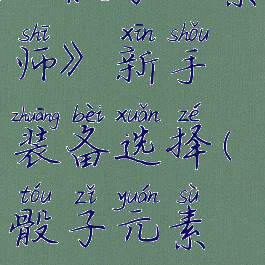 shī xīn shǒu
师》新手
zhuāng bèi xuǎn zé
装备选择(
tóu zǐ yuán sù
骰子元素